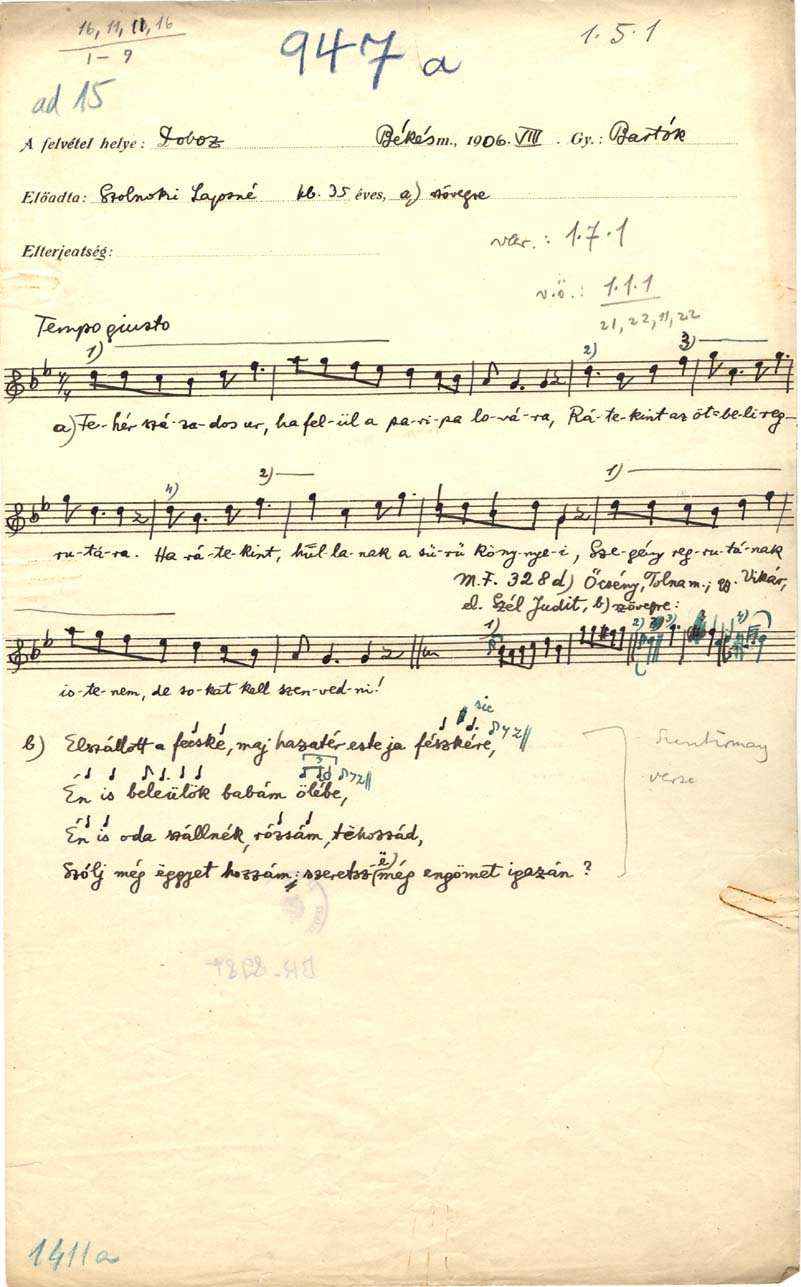 16, 11, 11, 16
1 - 9
947 a
1.5.1
ad 15
A felvétel helye: Doboz Békésm., 1906. VIII. Gy.: Bartók
Előadta: Szolnoki Lajosné kb. 35 éves, a) szövegre
Elterjeatség:
var.: 1.7.1
v.ö.: 1.1.1
21, 22, 11, 22
Tempo giusto
1) 2) 3)
a) Fe-hér szá-za-dos ur, ha fel-ül a pa-ri-pa lo-vá-ra, Rá-te-kint az öt-be-li reg-
4) 2) 1)
ru-tá-ra. Ha rá-te-kint, hul-la-nak a sü-rü köny-nye-i, Sze-gény reg-ru-tá-nak
M.F. 328 d) Őcsény, Tolnam.; gy. Vikár,
el. Szél Judit, b) szövegre:
1) 2) 3) 4)
is-te-nem, de so-kat kell szen-ved-ni!
sic
b) Elszállott a fecské, maj hazatér este ja fészkére,
Én is beleülök babám ölébe,
Én is oda szállnék, rózsám, tëhozzád,
Szólj még ëggyet hozzám; szeretsz(ë) még engömet igazán?
Szentirmay
verse
1411a